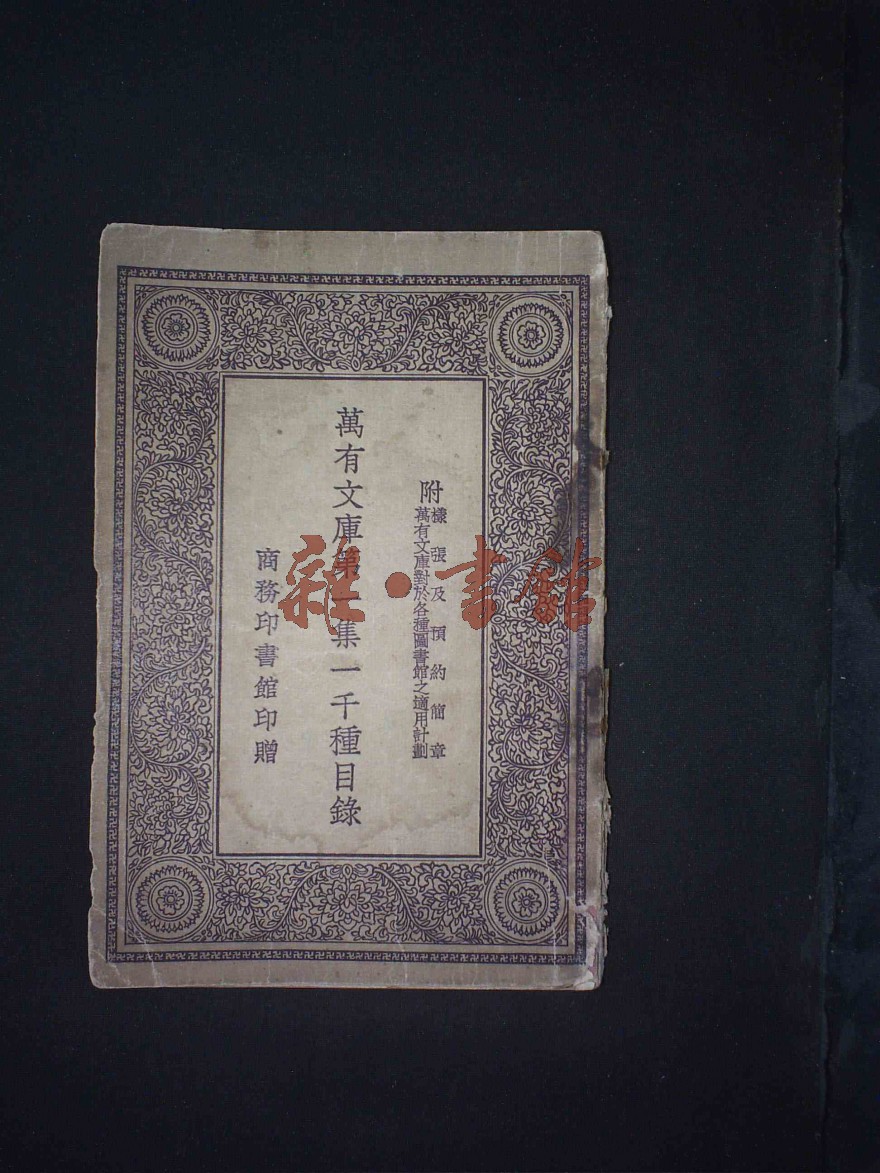 附
樣張及預約簡章
萬有文庫對於各種圖書館之適用計劃
萬有文庫第一集一千種目錄
商務印書館印贈
雜·書館